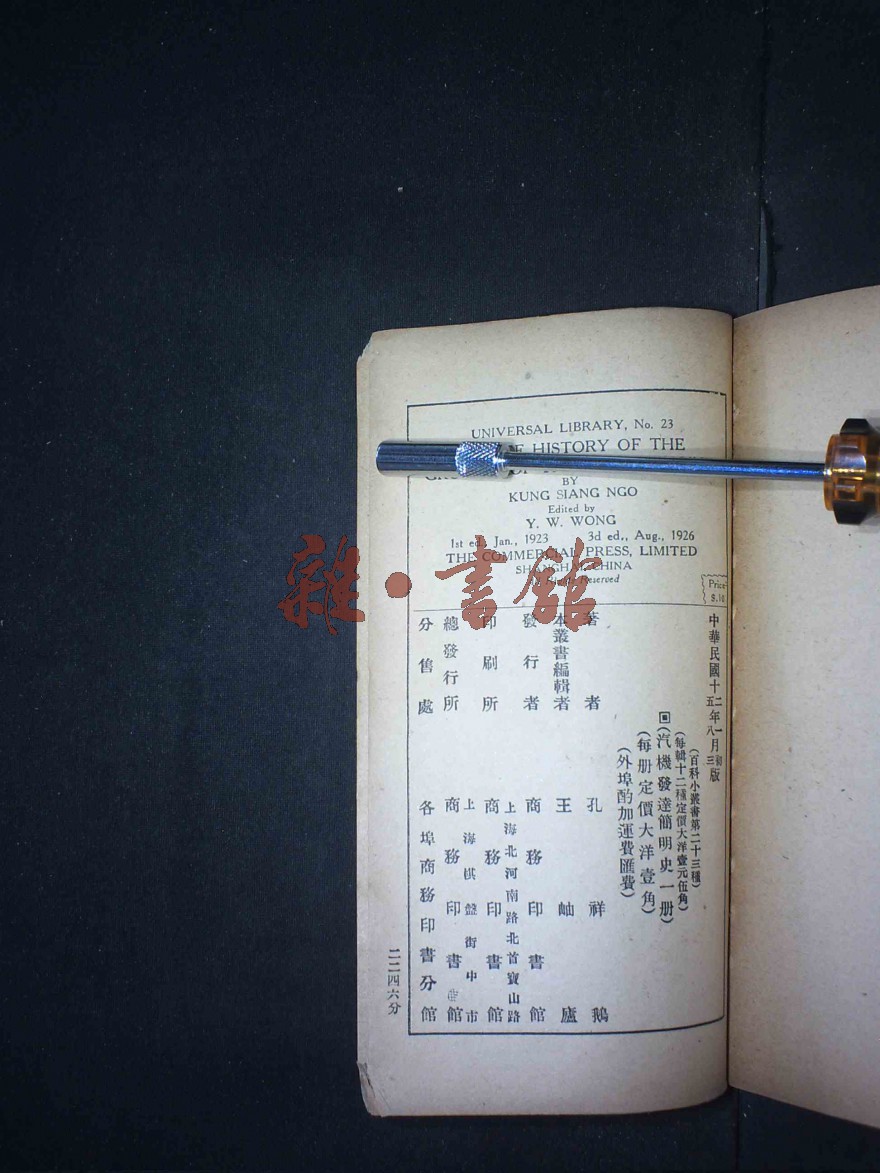 UNIVERSAL LIBRARY, No. 23
HISTORY OF THE
BY
KUNG SIANG NGO
Edited by
Y. W. WONG
1st ed., Jan., 1923 3d ed., Aug., 1926
THE COMMERCIAL PRESS, LIMITED
SHANGHAI, CHINA
All Rights Reserved
Price
$.10
中華民國十二年一月初版
五 八 三
(百科小叢書第二十三種)
(每輯十二種定價大洋壹元伍角)
回(汽機發達簡明史一册)
(每册定價大洋壹角)
(外埠酌加運費匯費)
著者 孔祥鵝
本叢書編輯者 王岫廬
發行者 商務印書館
上海北河南路北首寶山路
印刷所 商務印書館
上海棋盤街中市
總發行所 商務印書館
分售處 各埠商務印書分館
二二四六分
雜·書館